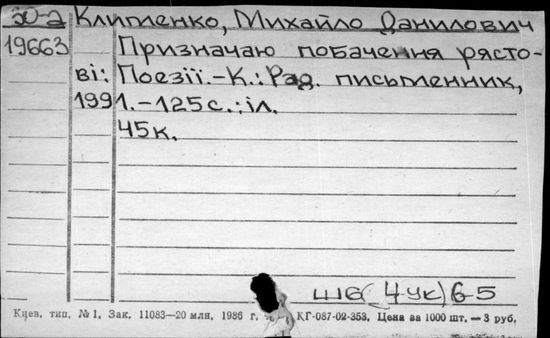 20-2 Клименко, Михайло Данилович
19663 Призначаю побачення рясто-
ві: Поезії.-К.: Рад. письменник,
1991.-125с.; іл.
45к.
Ш6(4Ук)6-5
Киев. тип. №1, Зак. 11083—20 млн, 1986 г. КГ-087-02-353. Цена за 1000 шт. — 3 руб.